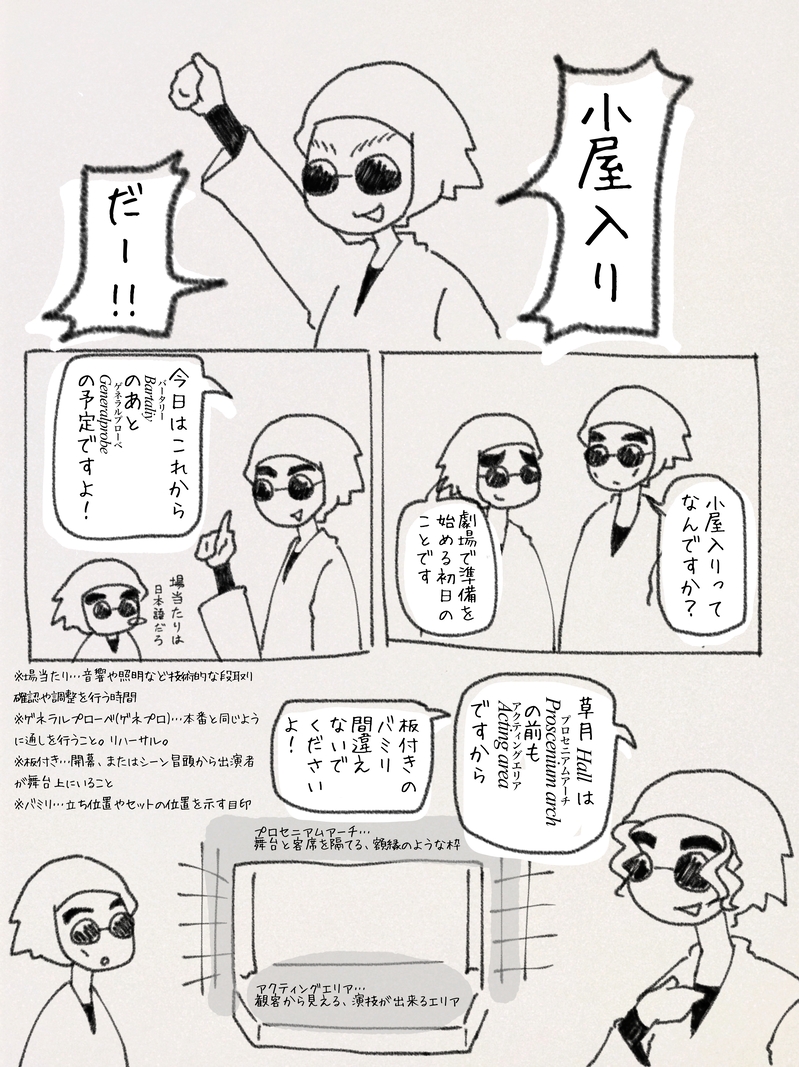 小屋入り
だー!!
小屋入りって
なんですか?
劇場で準備を
始める初日の
ことです
今日はこれから
バータリー
Bartaliy
のあと
ゲネラルプローベ
Generalprobe
の予定ですよ!
場当たりは
日本語だろ
※場当たり…音響や照明など技術的な段取り
確認や調整を行う時間
※ゲネラルプローベ(ゲネプロ)…本番と同じよう
に通しを行うこと。リハーサル。
※板付き…開幕、またはシーン冒頭から出演者
が舞台上にいること
※バミリ…立ち位置やセットの位置を示す目印
草月 Hall は
プロセニアムアーチ
Proscenium arch
の前も
アクティングエリア
Acting area
ですから
板付きの
バミリ
間違え
ないで
ください
よ!
プロセニアムアーチ…
舞台と客席を隔てる、額縁のような枠
アクティングエリア…
観客から見える、演技が出来るエリア